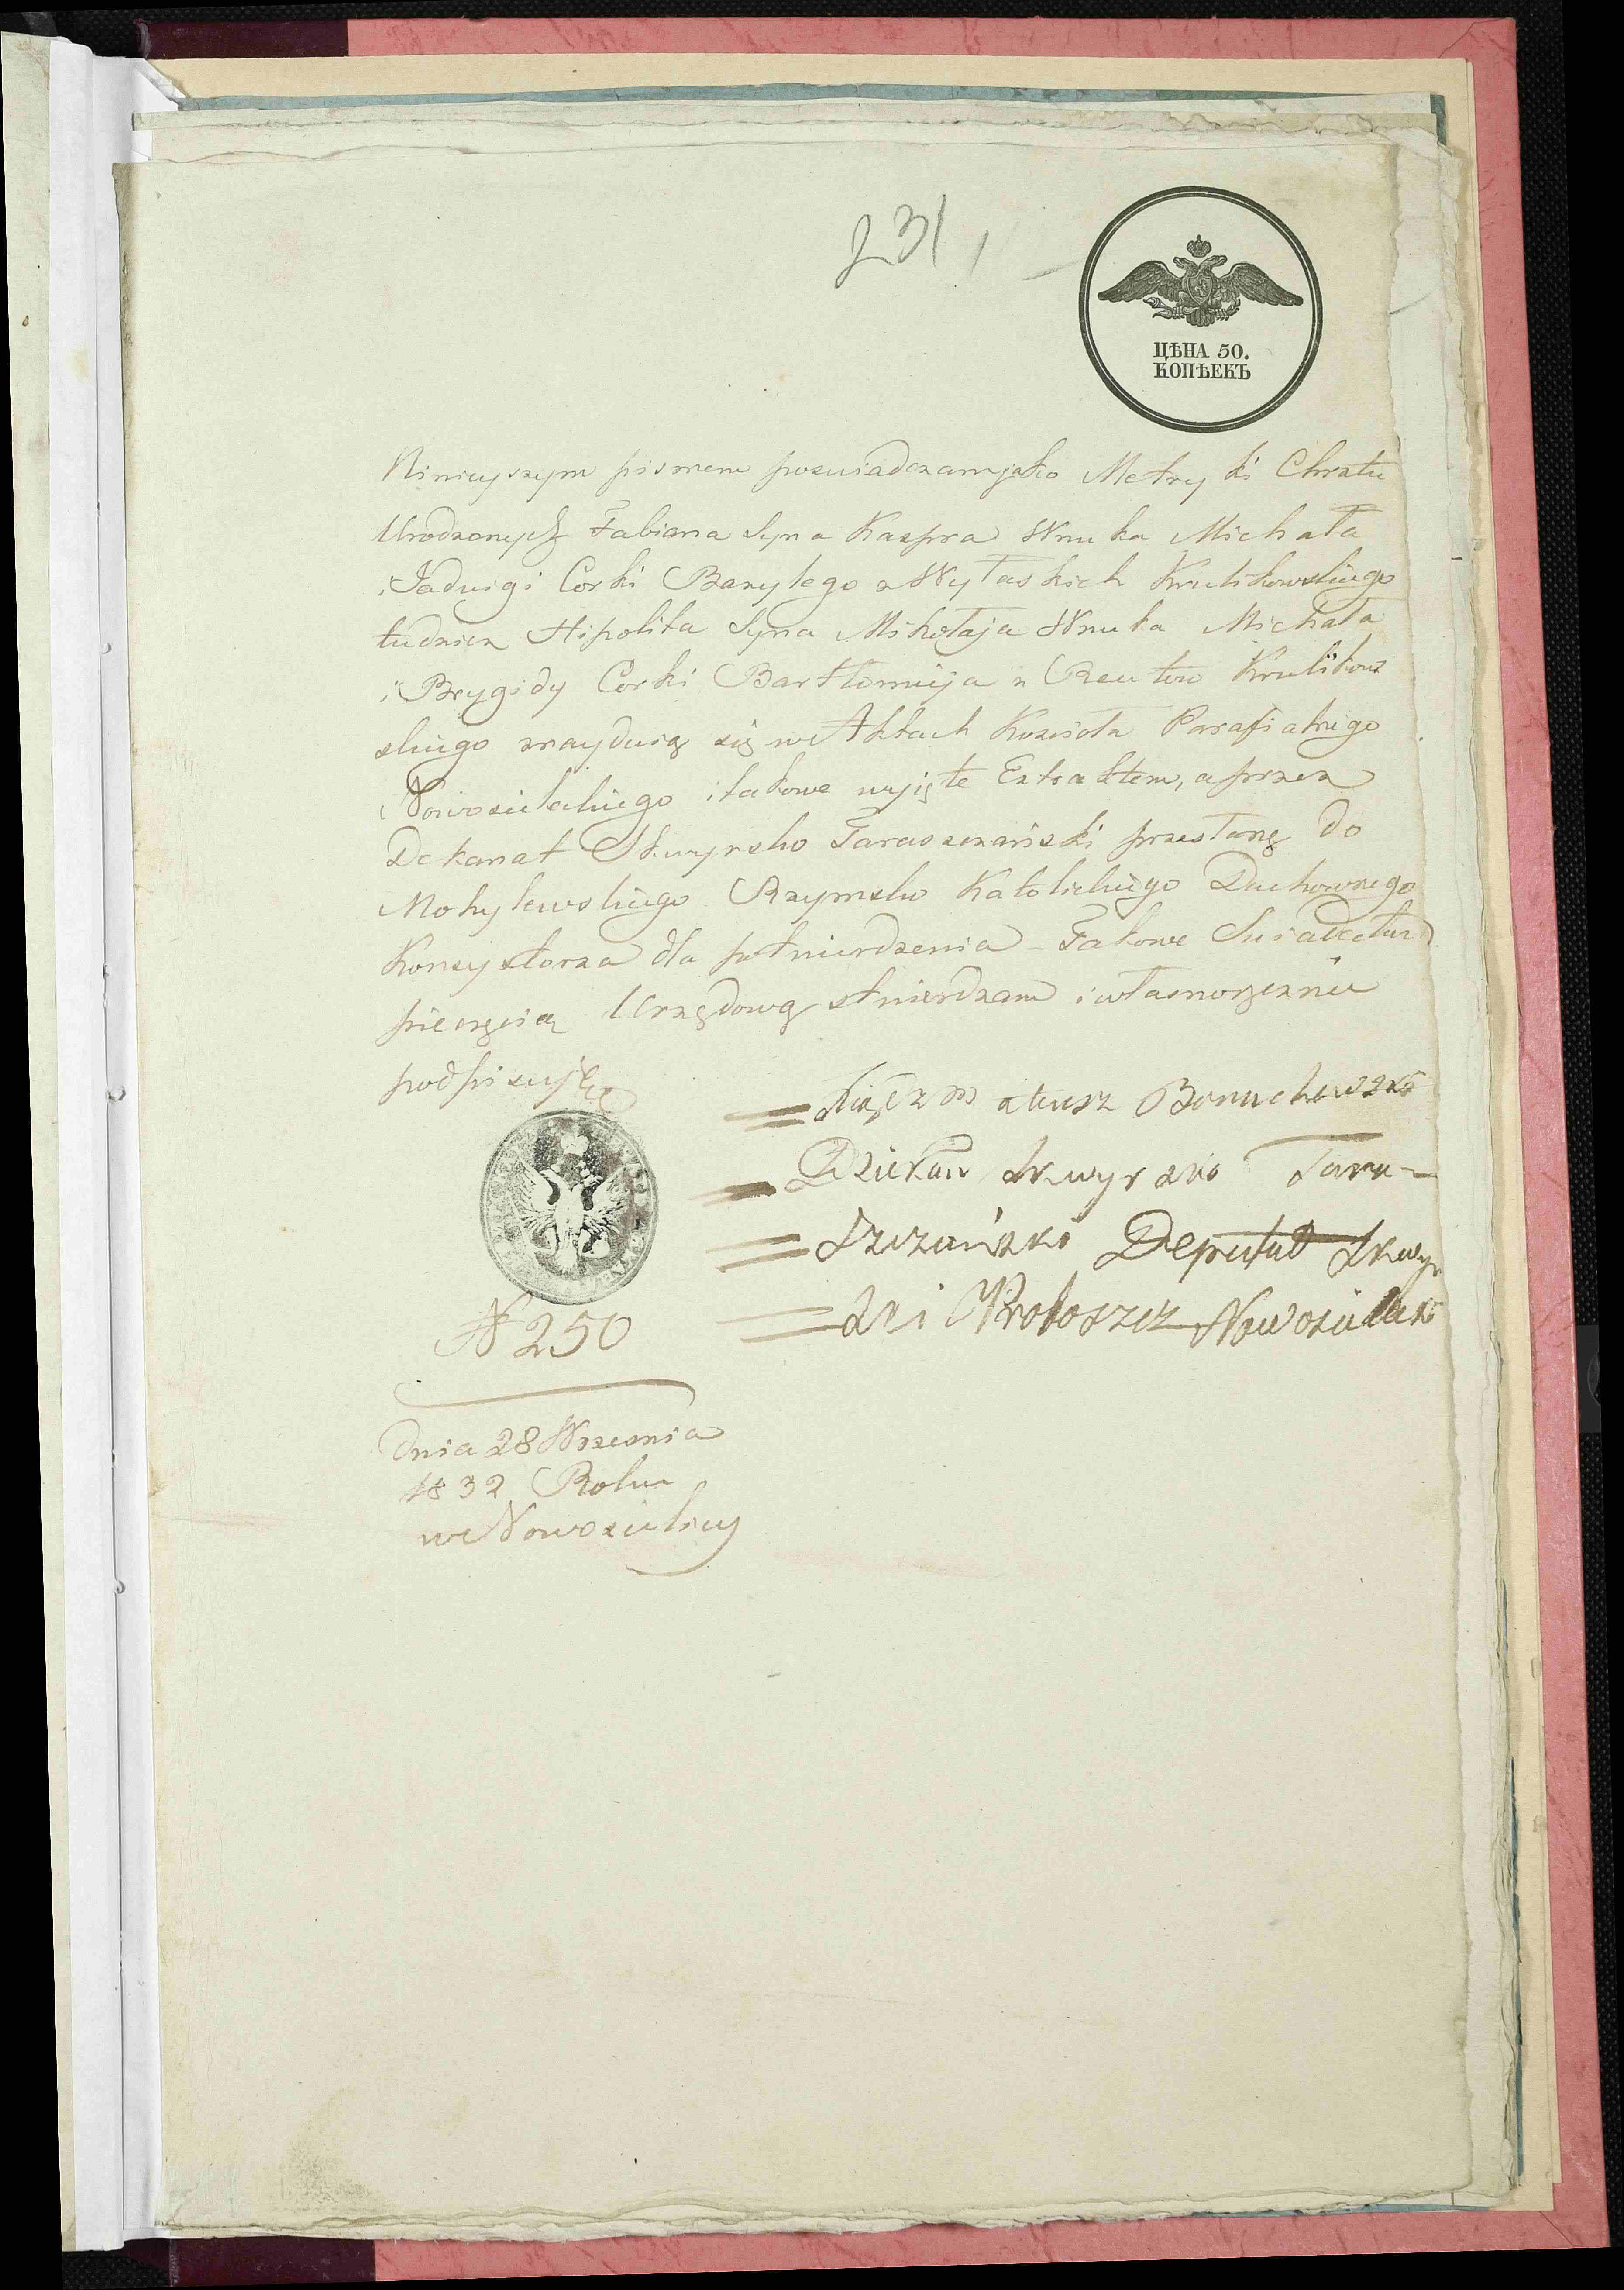 231
ЦѢНА 50.
КОПѢЕКЪ
Ninieyszym pismem poswiadczam jako Metryki Chrztu
Urodzonych Fabiana Syna Kaspra Wnuka Michała
i Jadwigi Corki Bazylego z Wytaskich Krulikowskiego
tudziez Hipolita Syna Mikołaja Wnuka Michała
i Brygidy Corki Bartłomieja z Reutow Krulikow
skiego znayduią się w Aktach Koscioła Parafialnego
Nowosieleckiego i takowe wyięte Extraktem, a przez
Dekanat Skwyrsko Taraszczański przesłane do
Mohylewskiego Rzymsko Katolickiego Duchownego
Konsystorza dla potwierdzenia - Takowe Swiadectwo
pieczęcią Urzędową stwierdzam i własnoręcznie
podpisuję
Xiądz Mateusz Bonuchowski
Dziekan Skwyrsko Tara-
szczański Deputat Skwyr
ski Proboszcz Nowosielecki
N 250
Dnia 28 Wrzesnia
1832 Roku
w Nowosielicy